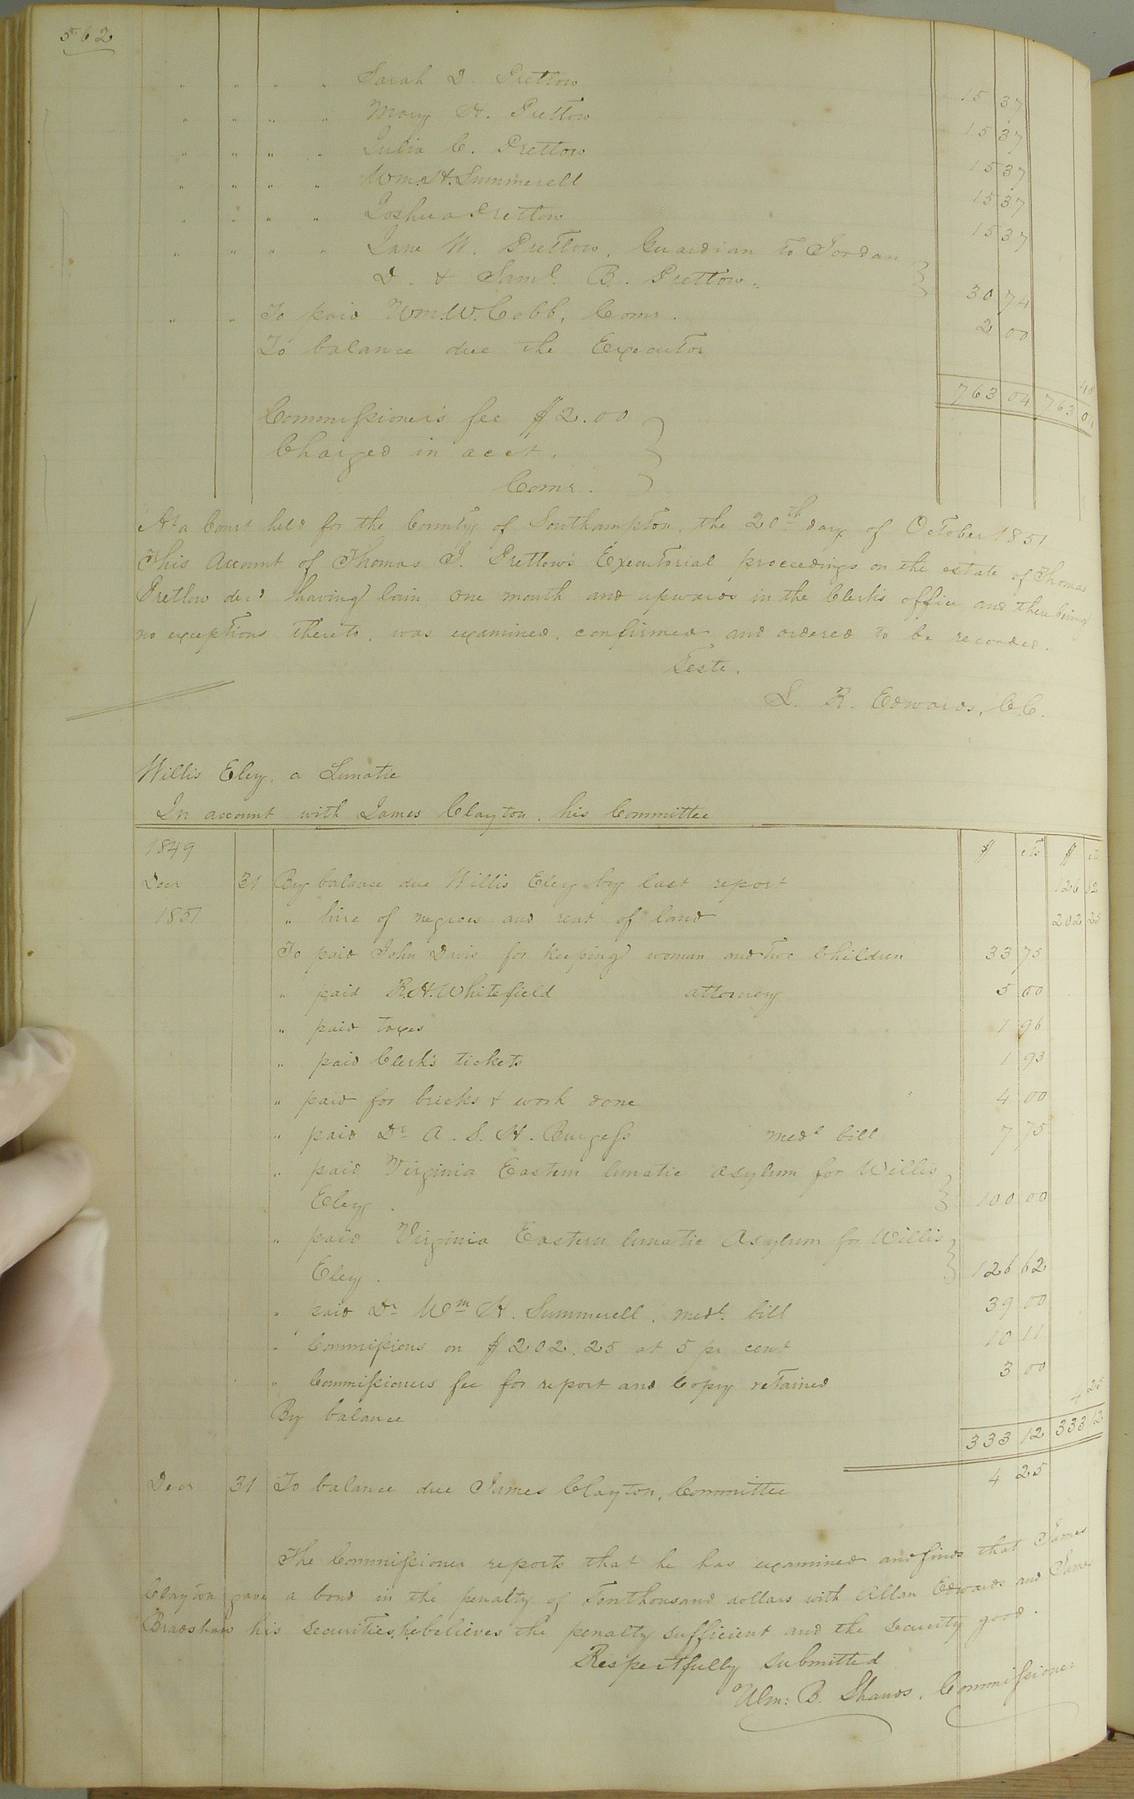 562
" " " " Sarah D. Pretlow 15 37
" " " " Mary A. Pretlow 15 37
" " " " Julia C. Pretlow 15 37
" " " " Wm. H. Summerell 15 37
" " " " Joshua Pretlow 15 37
" " " " Jane W. Pretlow, Guardian to Jordan
D. & Saml. B. Pretlow. 30 74
" " To paid Wm. W. Cobb, Comr. 2 00
To balance due the Executor
763 04 763 04
Commissioner's fee $2.00
Charged in acct.
Comr.
At a Court held for the County of Southampton, the 20th day of October 1851
This Account of Thomas J. Pretlow's Executorial proceedings on the estate of Thomas
Pretlow decd having lain one month and upwards in the Clerk's office and there being
no exceptions thereto, was examined, confirmed and ordered to be recorded.
Teste.
L. R. Edwards, C.C.
Willis Eley, a Lunatic
In account with James Clayton, his Committee
1849 $ cts $ cts
Decr 31 By balance due Willis Eley by last report 126 62
1851 " hire of negroes and rent of land 202 25
To paid John Davis for keeping woman and two Children 33 75
" paid R. H. Whitefield attorney 5 00
" paid taxes 1 96
" paid Clerk's tickets 1 93
" paid for bricks & work done 4 00
" paid Dr A. S. H. Burgess medl bill 7 75
" paid Virginia Eastern lunatic asylum for Willis
Eley. 100 00
" paid Virginia Eastern lunatic Asylum for Willis
Eley. 126 62
" paid Dr Wm H. Summerell, medl. bill 39 00
" Commissions on $202.25 at 5 pr cent 10 11
" Commissioners fee for report and Copy retained 3 00
By balance 4 25
333 12 333 12
Decr 31 To balance due James Clayton, Committee 4 25
The Commissioner reports that he has examined and finds that James
Clayton gave a bond in the penalty of Ten thousand dollars with Allan Edwards and James
Bradshaw his securities, he believes the penalty sufficient and the security good.
Respectfully submitted
Wm: B. Shands, Commissioner